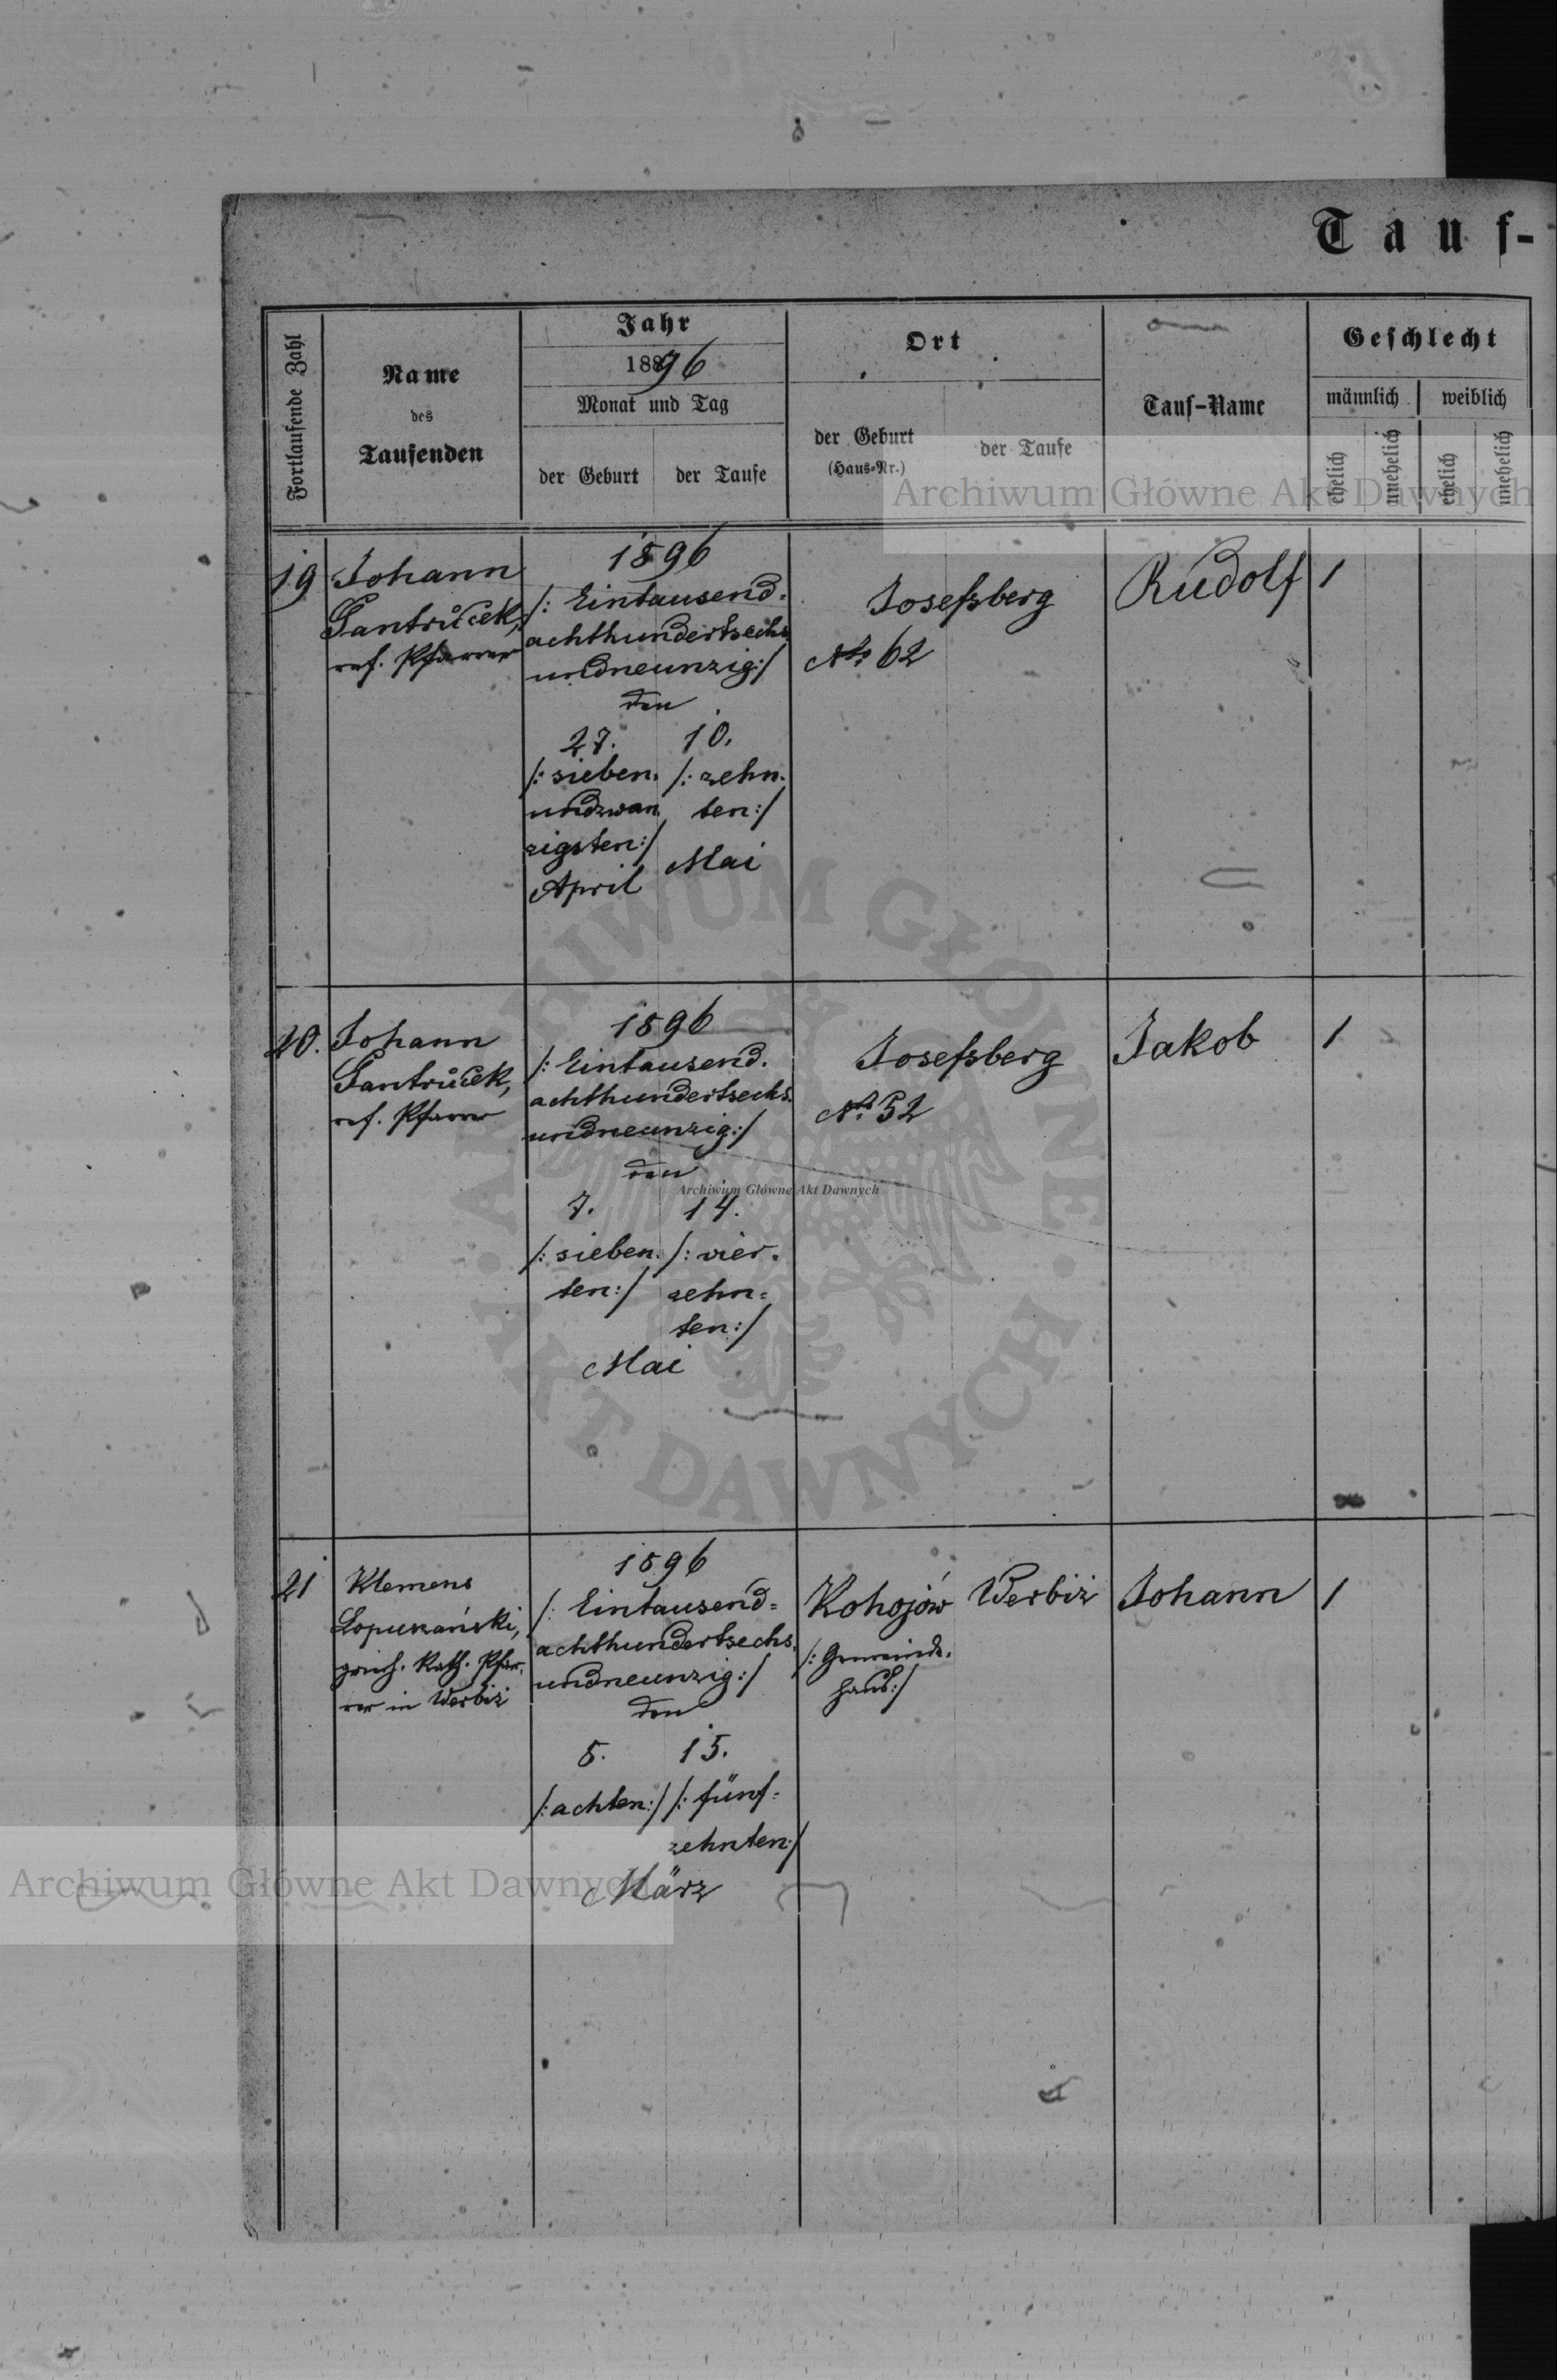 Tauf-
Fortlaufende Zahl
Name
des
Taufenden
Jahr
18896
Monat und Tag
der Geburt
der Taufe
Ort
der Geburt
(Haus-Nr.)
der Taufe
Tauf-Name
Geschlecht
männlich
weiblich
ehelich
unehelich
ehelich
unehelich
Archiwum Główne Akt Dawnych
19
Johann
Jantrůček,
ref. Pfarrer
1896
/: Eintausend-
achthundertsechs-
undneunzig :/
den
27.
/: sieben-
undzwan-
zigsten :/
April
10.
/: zehn-
ten :/
Mai
Josefsberg
No 62
Rudolf
1
20.
Johann
Jantrůček,
ref. Pfarrer
1896
/: Eintausend-
achthundertsechs-
undneunzig :/
den
7.
/: sieben-
ten :/
14.
/: vier-
zehn=
ten :/
Mai
Josefsberg
No 52
Jakob
1
Archiwum Główne Akt Dawnych
ARCHIWUM GŁÓWNE
AKT DAWNYCH
21
Klemens
Łopuszański,
griech. kath. Pfar-
rer in Werbiż
1896
/: Eintausend=
achthundertsechs-
undneunzig :/
den
8.
/: achten :/
15.
/: fünf=
zehnten :/
März
Kohojów
/: Gemeinde-
haus :/
Werbiż
Johann
1
Archiwum Główne Akt Dawnych